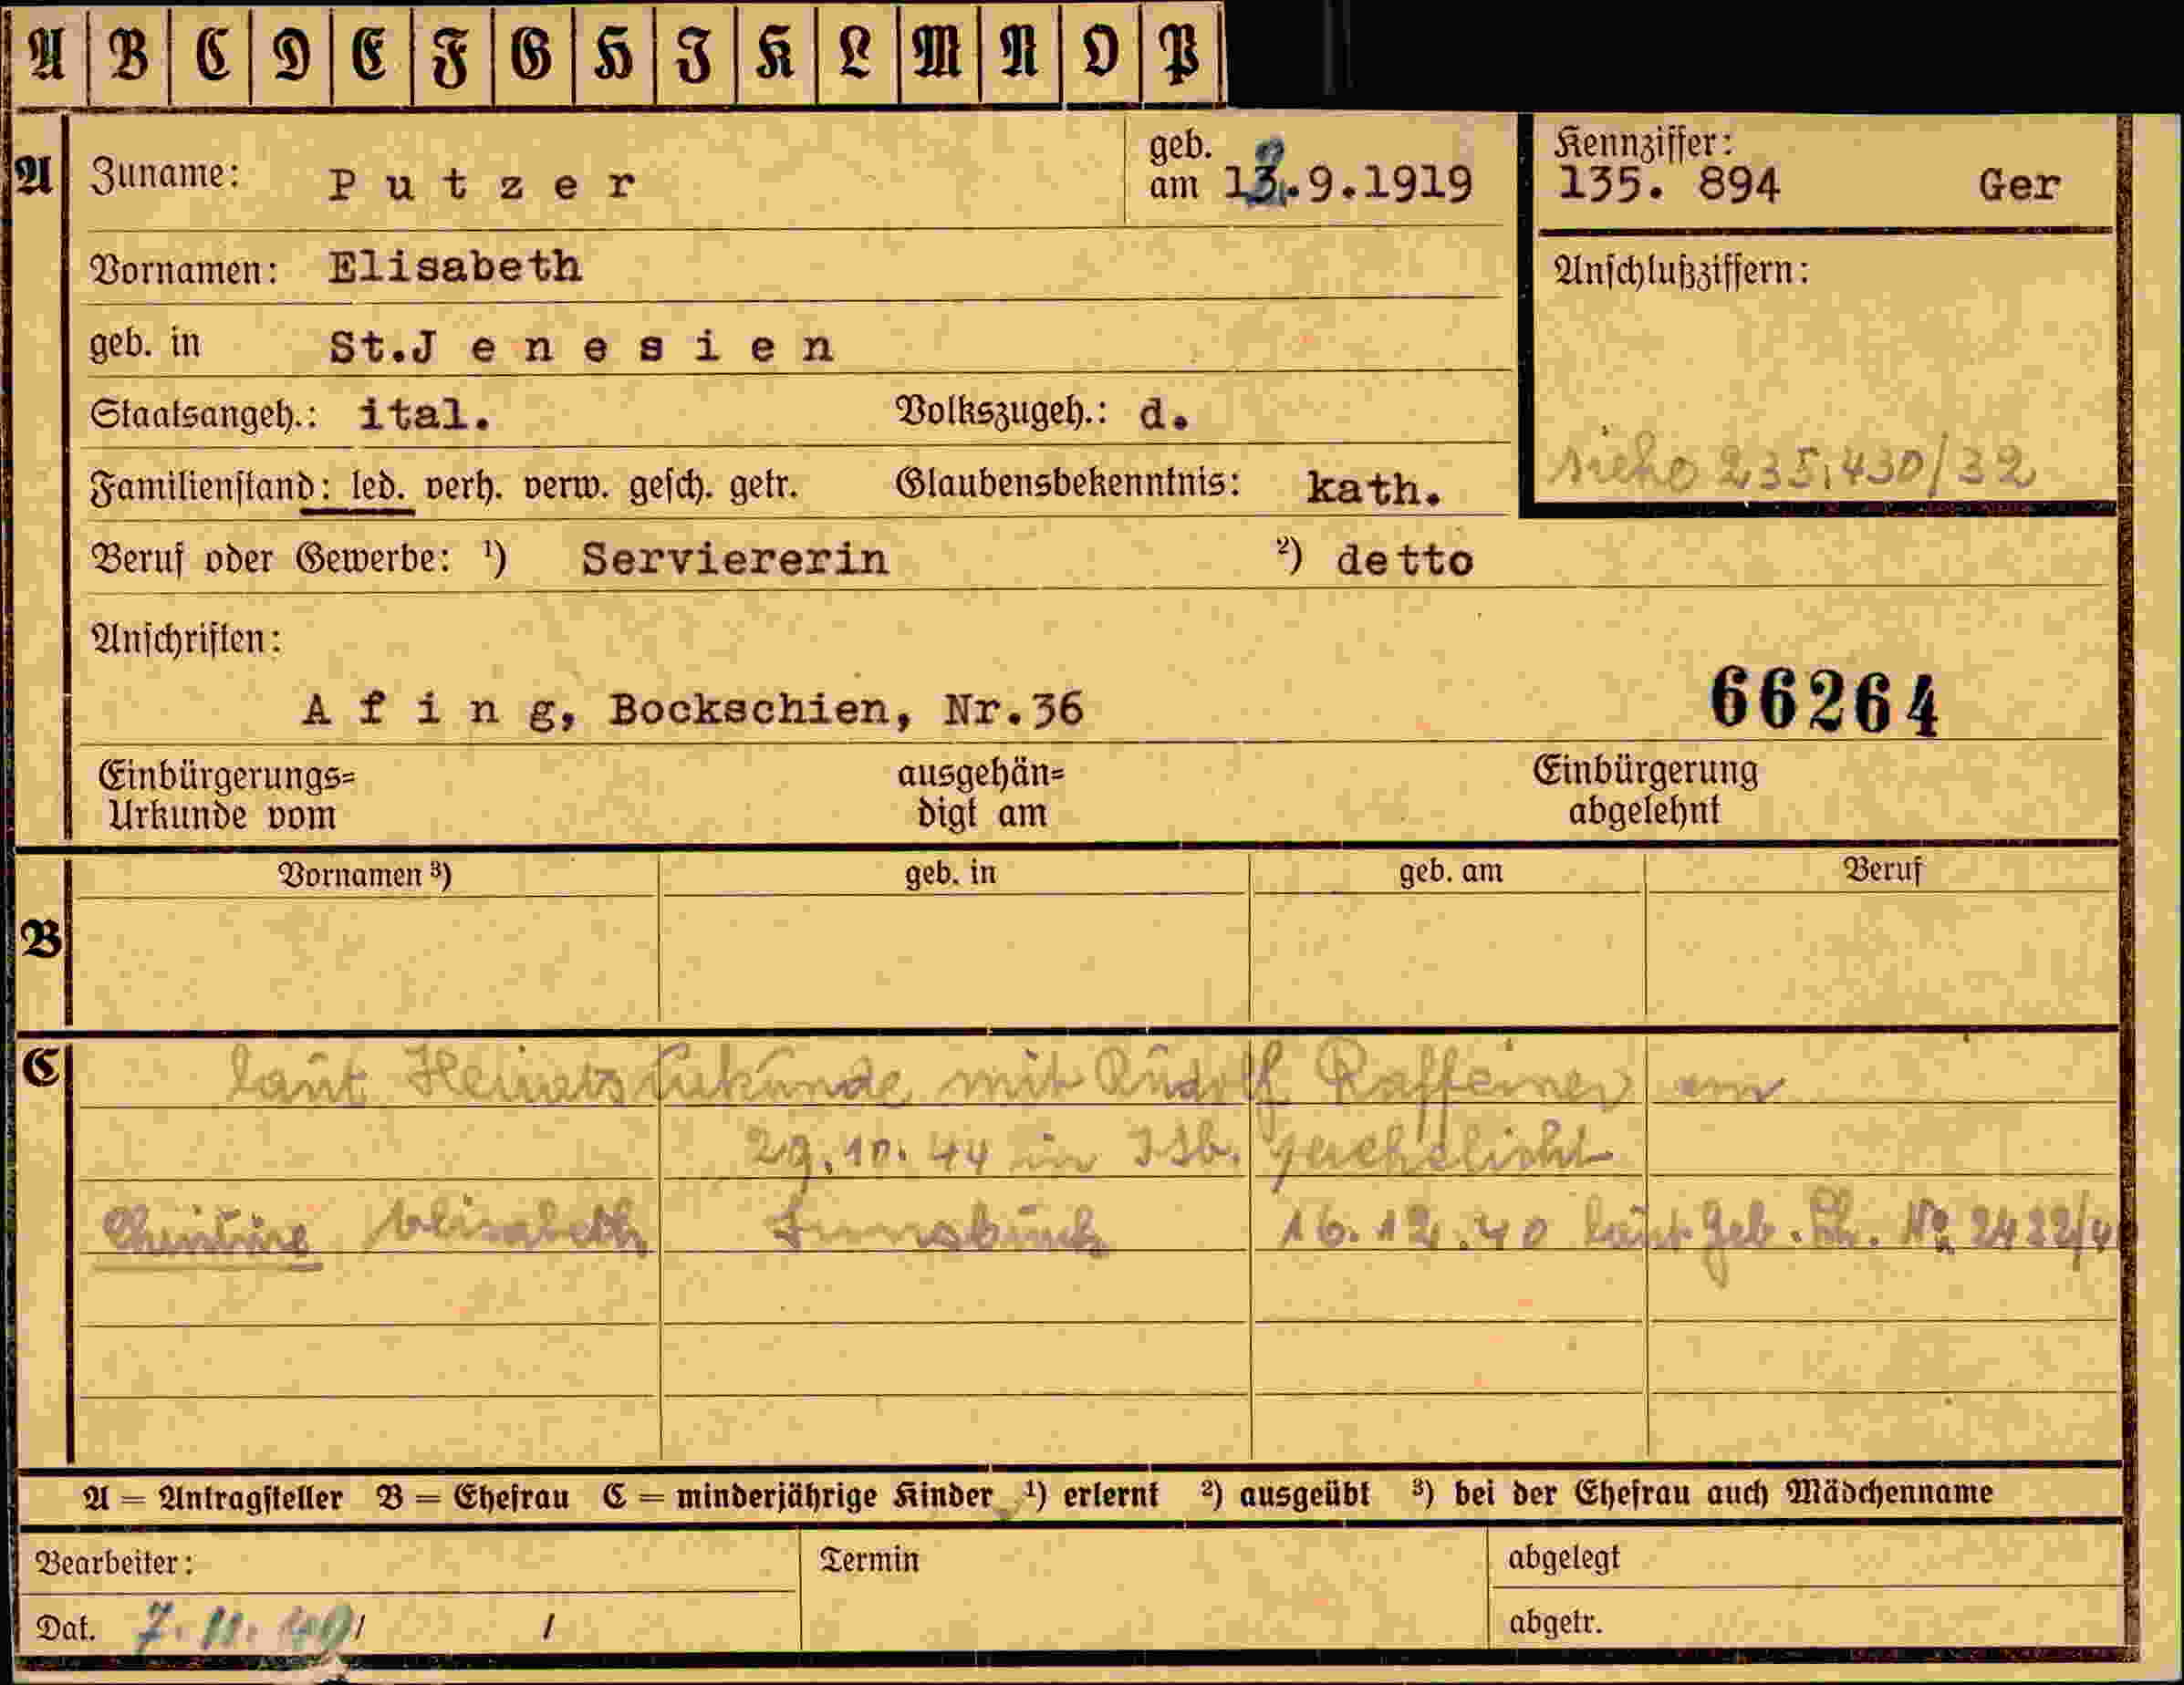 A B C D E F G H I K L M N O P
A Zuname: Putzer geb. am 13.9.1919 Kennziffer: 135. 894 Ger
Vornamen: Elisabeth Anschlußziffern:
geb. in St.Jenesien
Staatsangeh.: ital. Volkszugeh.: d.
siehe 235,430/32
Familienstand: led. verh. verw. gesch. getr. Glaubensbekenntnis: kath.
Beruf oder Gewerbe: ¹) Serviererin ²) detto
Anschriften:
Afing, Bockschien, Nr.36 66264
Einbürgerungs= ausgehän= Einbürgerung
Urkunde vom digt am abgelehnt
Vornamen ³) geb. in geb. am Beruf
B
C laut Heirats Urkunde mit Rudolf Raffeiner am
29.10.44 in Isb. verehelicht
Christine Elisabeth Innsbruck 16.12.40 laut Geb. No 2422/40
A = Antragsteller B = Ehefrau C = minderjährige Kinder ¹) erlernt ²) ausgeübt ³) bei der Ehefrau auch Mädchenname
Bearbeiter: Termin abgelegt
Dat. 7.11. / / abgetr.